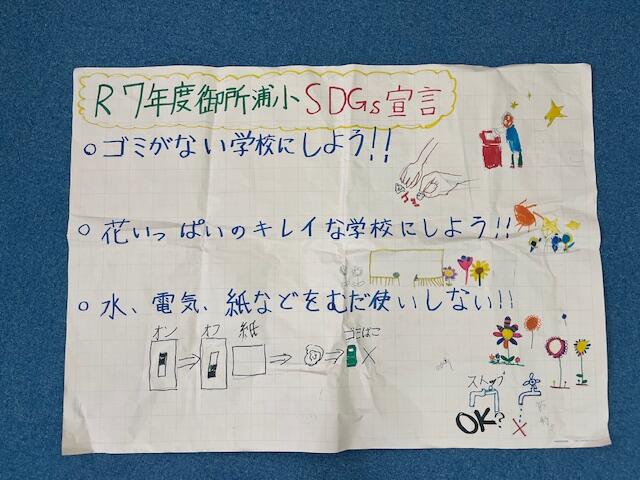 R7年度御所浦小SDGs宣言
○ゴミがない学校にしよう!!
ゴミ
○花いっぱいのキレイな学校にしよう!!
○水、電気、紙などをむだ使いしない!!
オン オフ 紙 ゴミばこ
ストップ
OK?